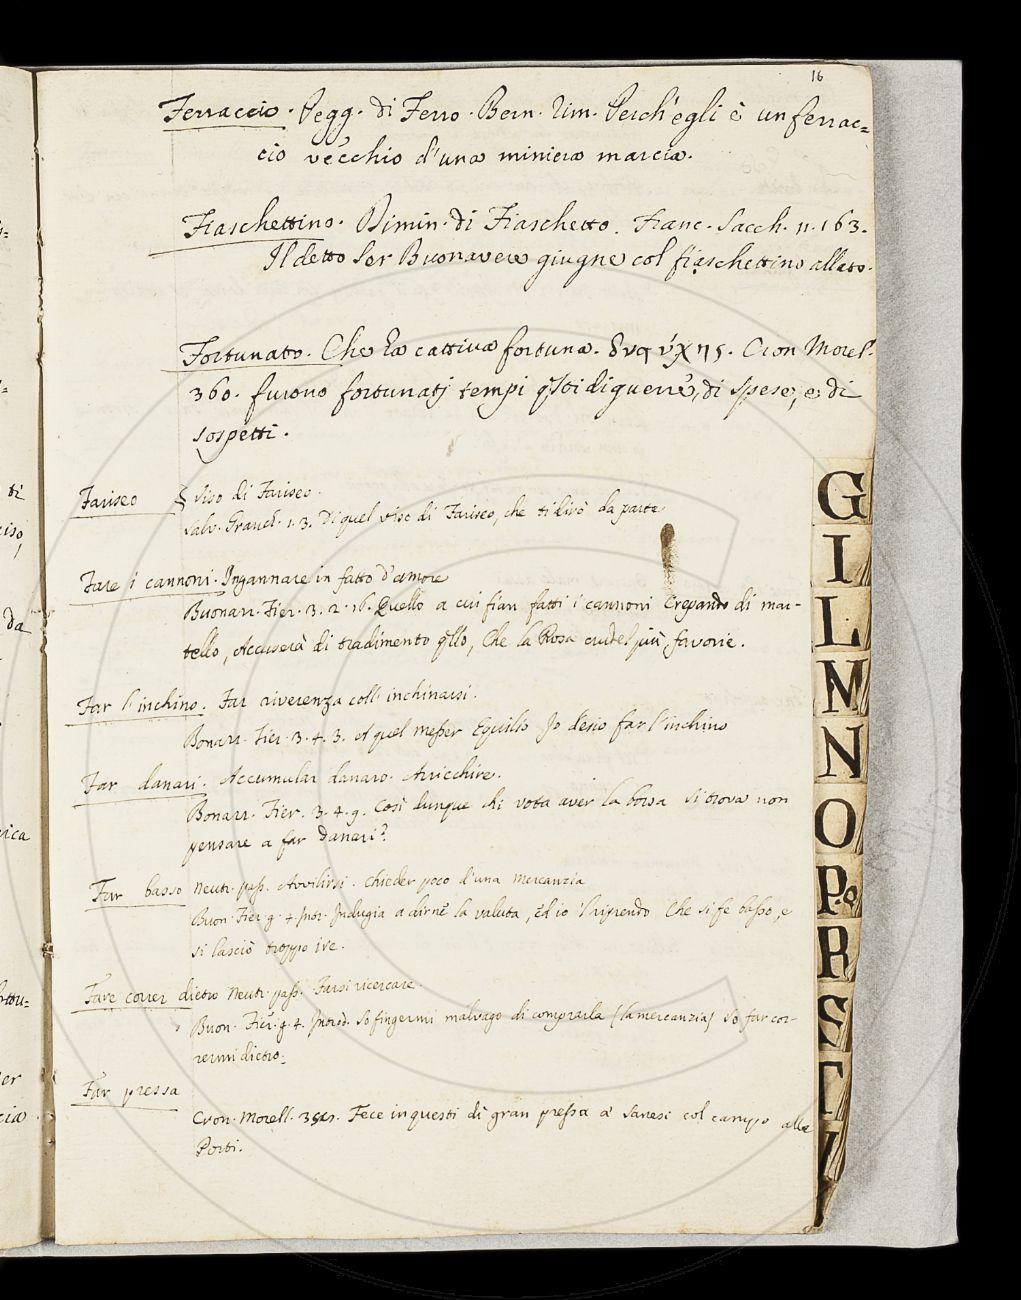 16
Ferraccio. Pegg. di Ferro. Bern. Rim. Perch'egli è un ferrac=
cio vecchio d'una miniera marcia.
Fiaschettino. Dimin. di Fiaschetto. Franc. Sacch. n. 163.
Il detto Ser Buonavere giugne col fiaschettino allato.
Fortunato. Che ha cattiva fortuna. Cron Morel.
360. furono fortunati tempi qsti di guerre, di spese, e di
sospetti.
Fariseo viso di Fariseo.
Salv. Granch. 1. 3. Di quel viso di Fariseo, che ti dirò da parte
Fare i cannoni. Ingannare in fatto d'amore
Buonarr. Fier. 3. 2. 16. Quello a cui fian fatti i cannoni Crepando di mar-
tello, Accuserà di tradimento qllo, Che la Rosa crudel più favorie.
Far l'inchino. Far riverenza coll'inchinarsi.
Bonarr. Fier. 3. 4. 3. A quel messer Equilio Io deno far l'inchino
Far danari. Accumular danaro. Arricchire.
Bonarr. Fier. 3. 4. 9. Così dunque chi vota aver la borsa si trova non
pensare a far danari?
Far basso Neutr. pass. Avvilirsi. Chieder poco d'una mercanzia
Buon. Fier. g. 4. Intr. Indugia a dirne la valuta, Ed io 'l riprendo Che si fe basso, e
si lasciò troppo ire.
Fare correr dietro Neutr. pass. Farsi ricercare.
Buon. Fier. g. 4. Introd. So fingermi malvago di comprarla (la mercanzia) So far cor-
rermi dietro.
Far pressa
Cron. Morell. Fece in questi dì gran pressa a' Sanesi col campo alle
Porti.
G
I
L
M
N
O
P.Q
R
S
T
V